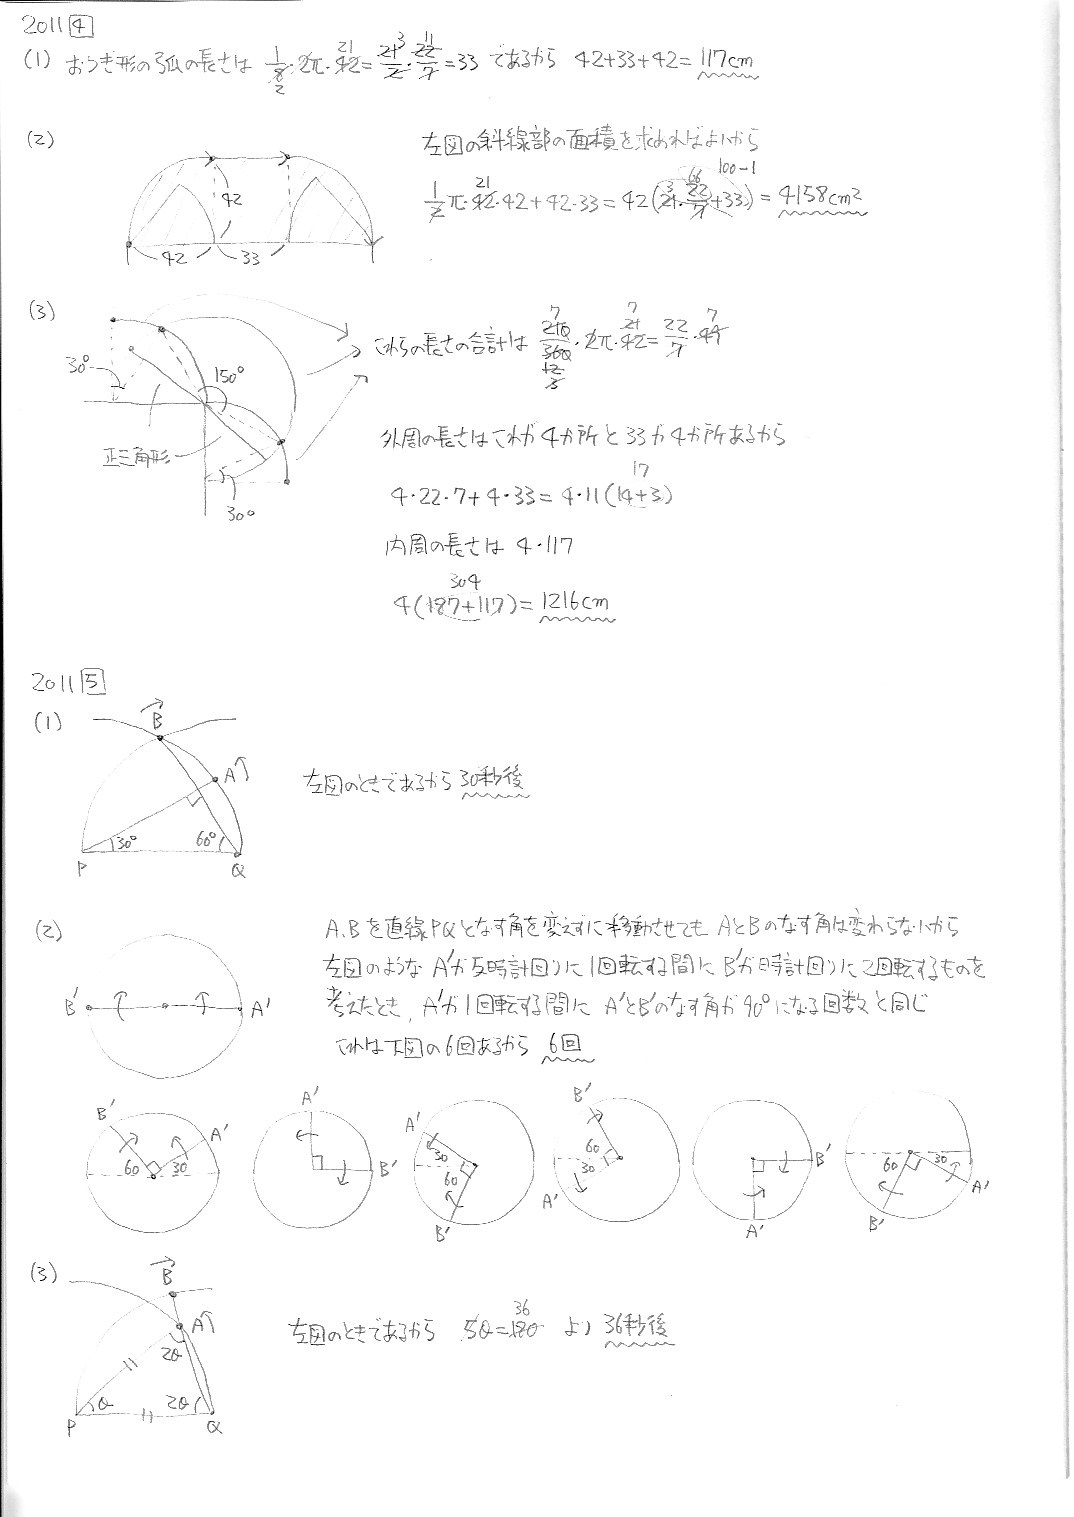 2011 4
(1) おうぎ形の弧の長さは 1/8・2π・42 = 21・22/7 = 33 であるから 42+33+42= 117cm
(2)
左図の斜線部の面積を求めればよいから
1/2 π・42・42+42・33 = 42(21・22/7+33) = 4158cm²
100-1
66
42
42 33
(3)
30° 150°
正三角形
30°
これらの長さの合計は 210/360・2π・42 = 22/7・49
外周の長さはこれが4か所と33が4か所あるから
17
4・22・7+4・33 = 4・11(14+3)
内周の長さは 4・117
304
4(187+117) = 1216cm
2011 5
(1)
B
A
30° 60°
P Q
左図のときであるから 30秒後
(2)
B' A'
A,Bを直線PQとなす角を変えずに移動させてもAとBのなす角は変わらないから
左図のような A'が反時計回りに1回転する間に B'が時計回りに2回転するものを
考えたとき, A'が1回転する間に A'とB'のなす角が90°になる回数と同じ
これは下図の6回あるから 6回
B' A' 60 30
A' B'
A' 30 60 B'
B' 60 30 A'
B' A'
60 30 A' B'
(3)
B
A
2θ
θ 2θ
P Q
左図のときであるから 5θ=180 より 36秒後
36